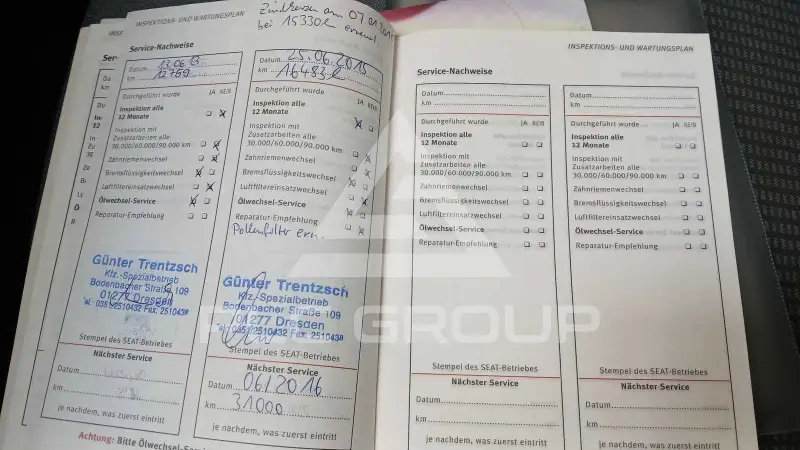 INSPEKTIONS- UND WARTUNGSPLAN
Service-Nachweise
Datum 13.06
km 12759
Durchgeführt wurde JA NEIN
Inspektion alle
12 Monate
Inspektion mit
Zusatzarbeiten alle
30.000/60.000/90.000 km
Zahnriemenwechsel
Bremsflüssigkeitswechsel
Luftfiltereinsatzwechsel
Ölwechsel-Service
Reparatur-Empfehlung
Günter Trentzsch
Kfz.-Spezialbetrieb
Bodenbacher Straße 109
01277 Dresden
Tel. 0351/2510432 Fax: 2510438
Stempel des SEAT-Betriebes
Nächster Service
Datum
km
je nachdem, was zuerst eintritt
Achtung: Bitte Ölwechsel-Ser
Zündkerzen am 07.01.201
bei 15330 km erneuert
Datum 25.06.2015
km 16483
Durchgeführt wurde JA NEIN
Inspektion alle
12 Monate
Inspektion mit
Zusatzarbeiten alle
30.000/60.000/90.000 km
Zahnriemenwechsel
Bremsflüssigkeitswechsel
Luftfiltereinsatzwechsel
Ölwechsel-Service
Reparatur-Empfehlung
Pollenfilter ern.
Günter Trentzsch
Kfz.-Spezialbetrieb
Bodenbacher Straße 109
01277 Dresden
Tel. 0351/2510432 Fax: 2510438
Stempel des SEAT-Betriebes
Nächster Service
Datum 06/2016
km 31000
je nachdem, was zuerst eintritt
INSPEKTIONS- UND WARTUNGSPLAN
Service-Nachweise
Datum
km
Durchgeführt wurde JA NEIN
Inspektion alle
12 Monate
Inspektion mit
Zusatzarbeiten alle
30.000/60.000/90.000 km
Zahnriemenwechsel
Bremsflüssigkeitswechsel
Luftfiltereinsatzwechsel
Ölwechsel-Service
Reparatur-Empfehlung
Stempel des SEAT-Betriebes
Nächster Service
Datum
km
je nachdem, was zuerst eintritt
Datum
km
Durchgeführt wurde JA NEIN
Inspektion alle
12 Monate
Inspektion mit
Zusatzarbeiten alle
30.000/60.000/90.000 km
Zahnriemenwechsel
Bremsflüssigkeitswechsel
Luftfiltereinsatzwechsel
Ölwechsel-Service
Reparatur-Empfehlung
Stempel des SEAT-Betriebes
Nächster Service
Datum
km
je nachdem, was zuerst eintritt
GROUP